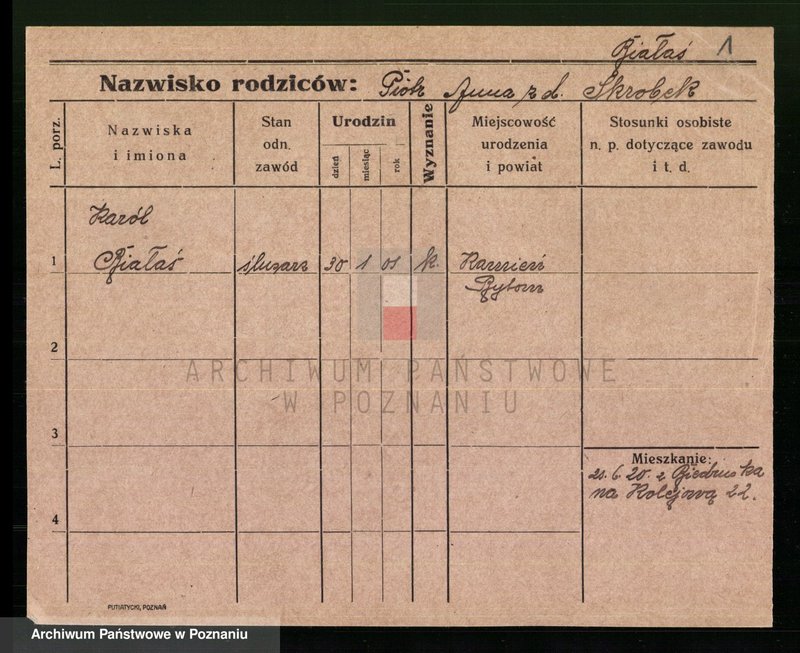 Białaś 1
Nazwisko rodziców: Piotr Anna z d. Skrobek
L. porz.
Nazwiska
i imiona
Stan
odn.
zawód
Urodzin
dzień
miesiąc
rok
Wyznanie
Miejscowość
urodzenia
i powiat
Stosunki osobiste
n. p. dotyczące zawodu
i t. d.
Karól
1 Białaś ślusarz 30 1 01 k. Kamień
Bytom
2
ARCHIWUM PAŃSTWOWE
W POZNANIU
3
Mieszkanie:
21.6.20. z Biedruska
na Kolejową 22.
4
PUTIATYCKI, POZNAŃ
Archiwum Państwowe w Poznaniu